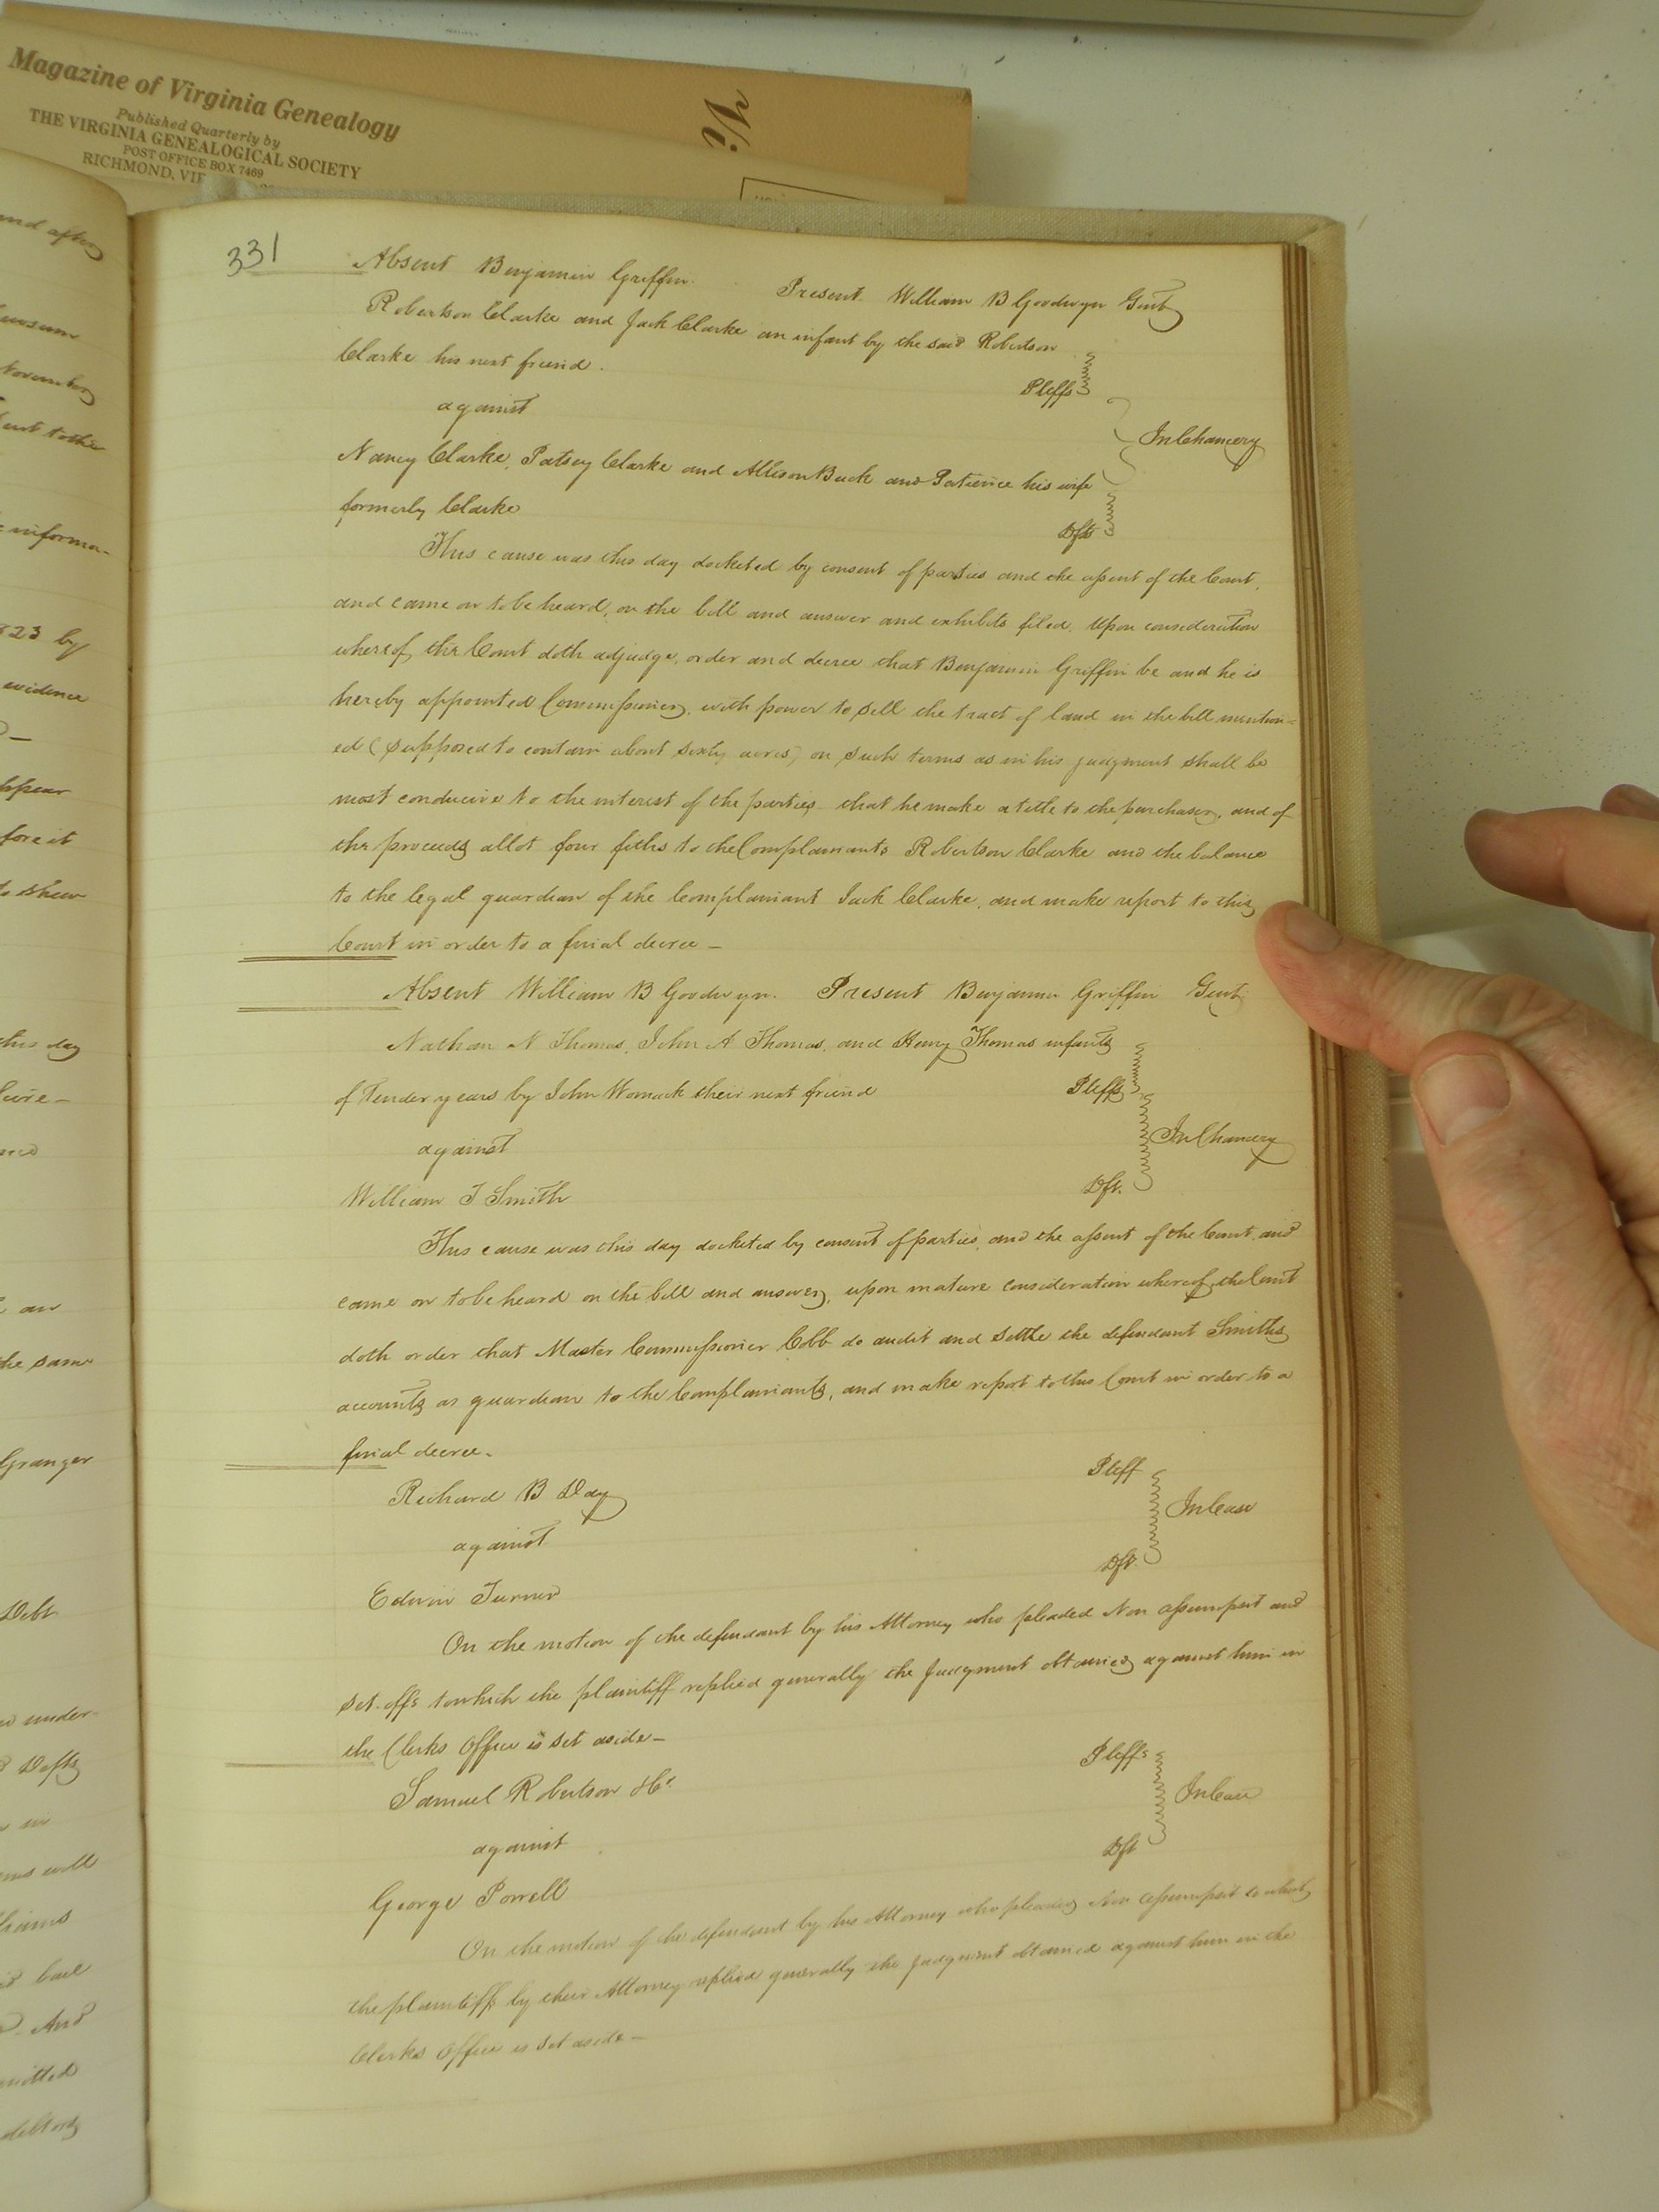 Magazine of Virginia Genealogy
Published Quarterly by
THE VIRGINIA GENEALOGICAL SOCIETY
POST OFFICE BOX 7469
RICHMOND, VIR
331
Absent Benjamin Griffin. Present William B Goodwyn Gent
Robertson Clarke and Jack Clarke an infant by the said Robertson
Clarke his next friend. Pleffs
against
In Chancery
Nancy Clarke, Patsey Clarke and Allison Buck and Patience his wife
formerly Clarke Dfts
This cause was this day docketed by consent of parties and the assent of the Court,
and came on to be heard, on the bill and answer and exhibits filed. Upon consideration
whereof, the Court doth adjudge, order and decree that Benjamin Griffin be and he is
hereby appointed Commissioner, with power to sell the tract of land in the bill mention=
ed (supposed to contain about sixty acres) on such terms as in his judgment shall be
most conducive to the interest of the parties - that he make a title to the purchaser, and of
the proceeds allot four fiths to the Complainants Robertson Clarke and the balance
to the legal guardian of the Complainant Jack Clarke, and make report to this
Court in order to a final decree —
Absent William B Goodwyn. Present Benjamin Griffin Gent
Nathan N Thomas, John A Thomas, and Henry Thomas infants
of Tender years by John Womack their next friend Pleffs
against In Chancery
William J Smith Dft.
This cause was this day docketed by consent of parties, and the assent of the Court, and
came on to be heard on the bill and answer, upon mature consideration whereof, the Court
doth order that Master Commissioner Cobb do audit and settle the defendant Smiths
accounts as guardian to the Complainants, and make report to this Court in order to a
final decree.
Richard B Day Pleff
against In Case
Edwin Turner Dft.
On the motion of the defendant by his Attorney who pleaded Non assumpsit and
set. offs to which the plaintiff replied generally the Judgment obtained against him in
the Clerks Office is set aside —
Samuel Robertson &Co Pleffs
against In Case
George Powell Dft
On the motion of the defendant by his Attorney who pleaded Non assumpsit to which
the plaintiffs by their Attorney replied generally the Judgment obtained against him in the
Clerks Office is set aside —